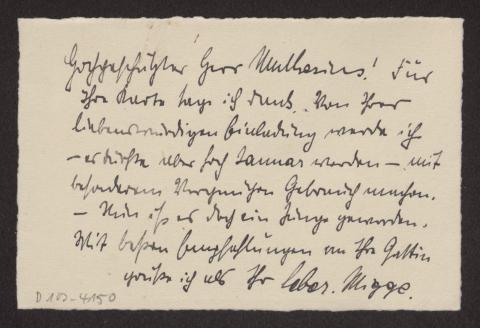 Hochgeschätzter Herr Muthesius! Für
Ihre Karte sage ich Dank. Von Ihrer
liebenswürdigen Einladung werde ich
– es dürfte aber Januar werden – mit
besonderem Vergnügen Gebrauch machen.
– Nun ist es doch ein Junge geworden.
Mit besten Empfehlungen an Ihre Gattin
grüße ich als Ihr Leber. Migge.
D 102-4150